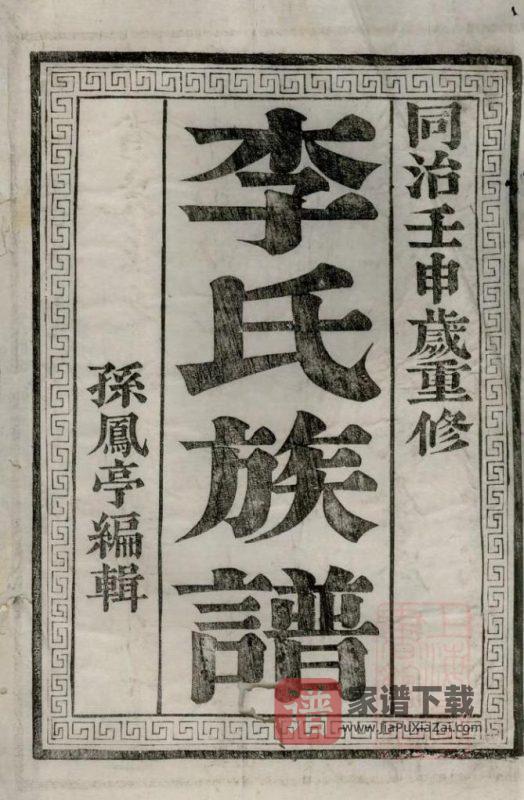 同治壬申歲重修
李氏族譜
孫鳳亭編輯
譜
家谱下载
www.jiaPuXiaZai.com